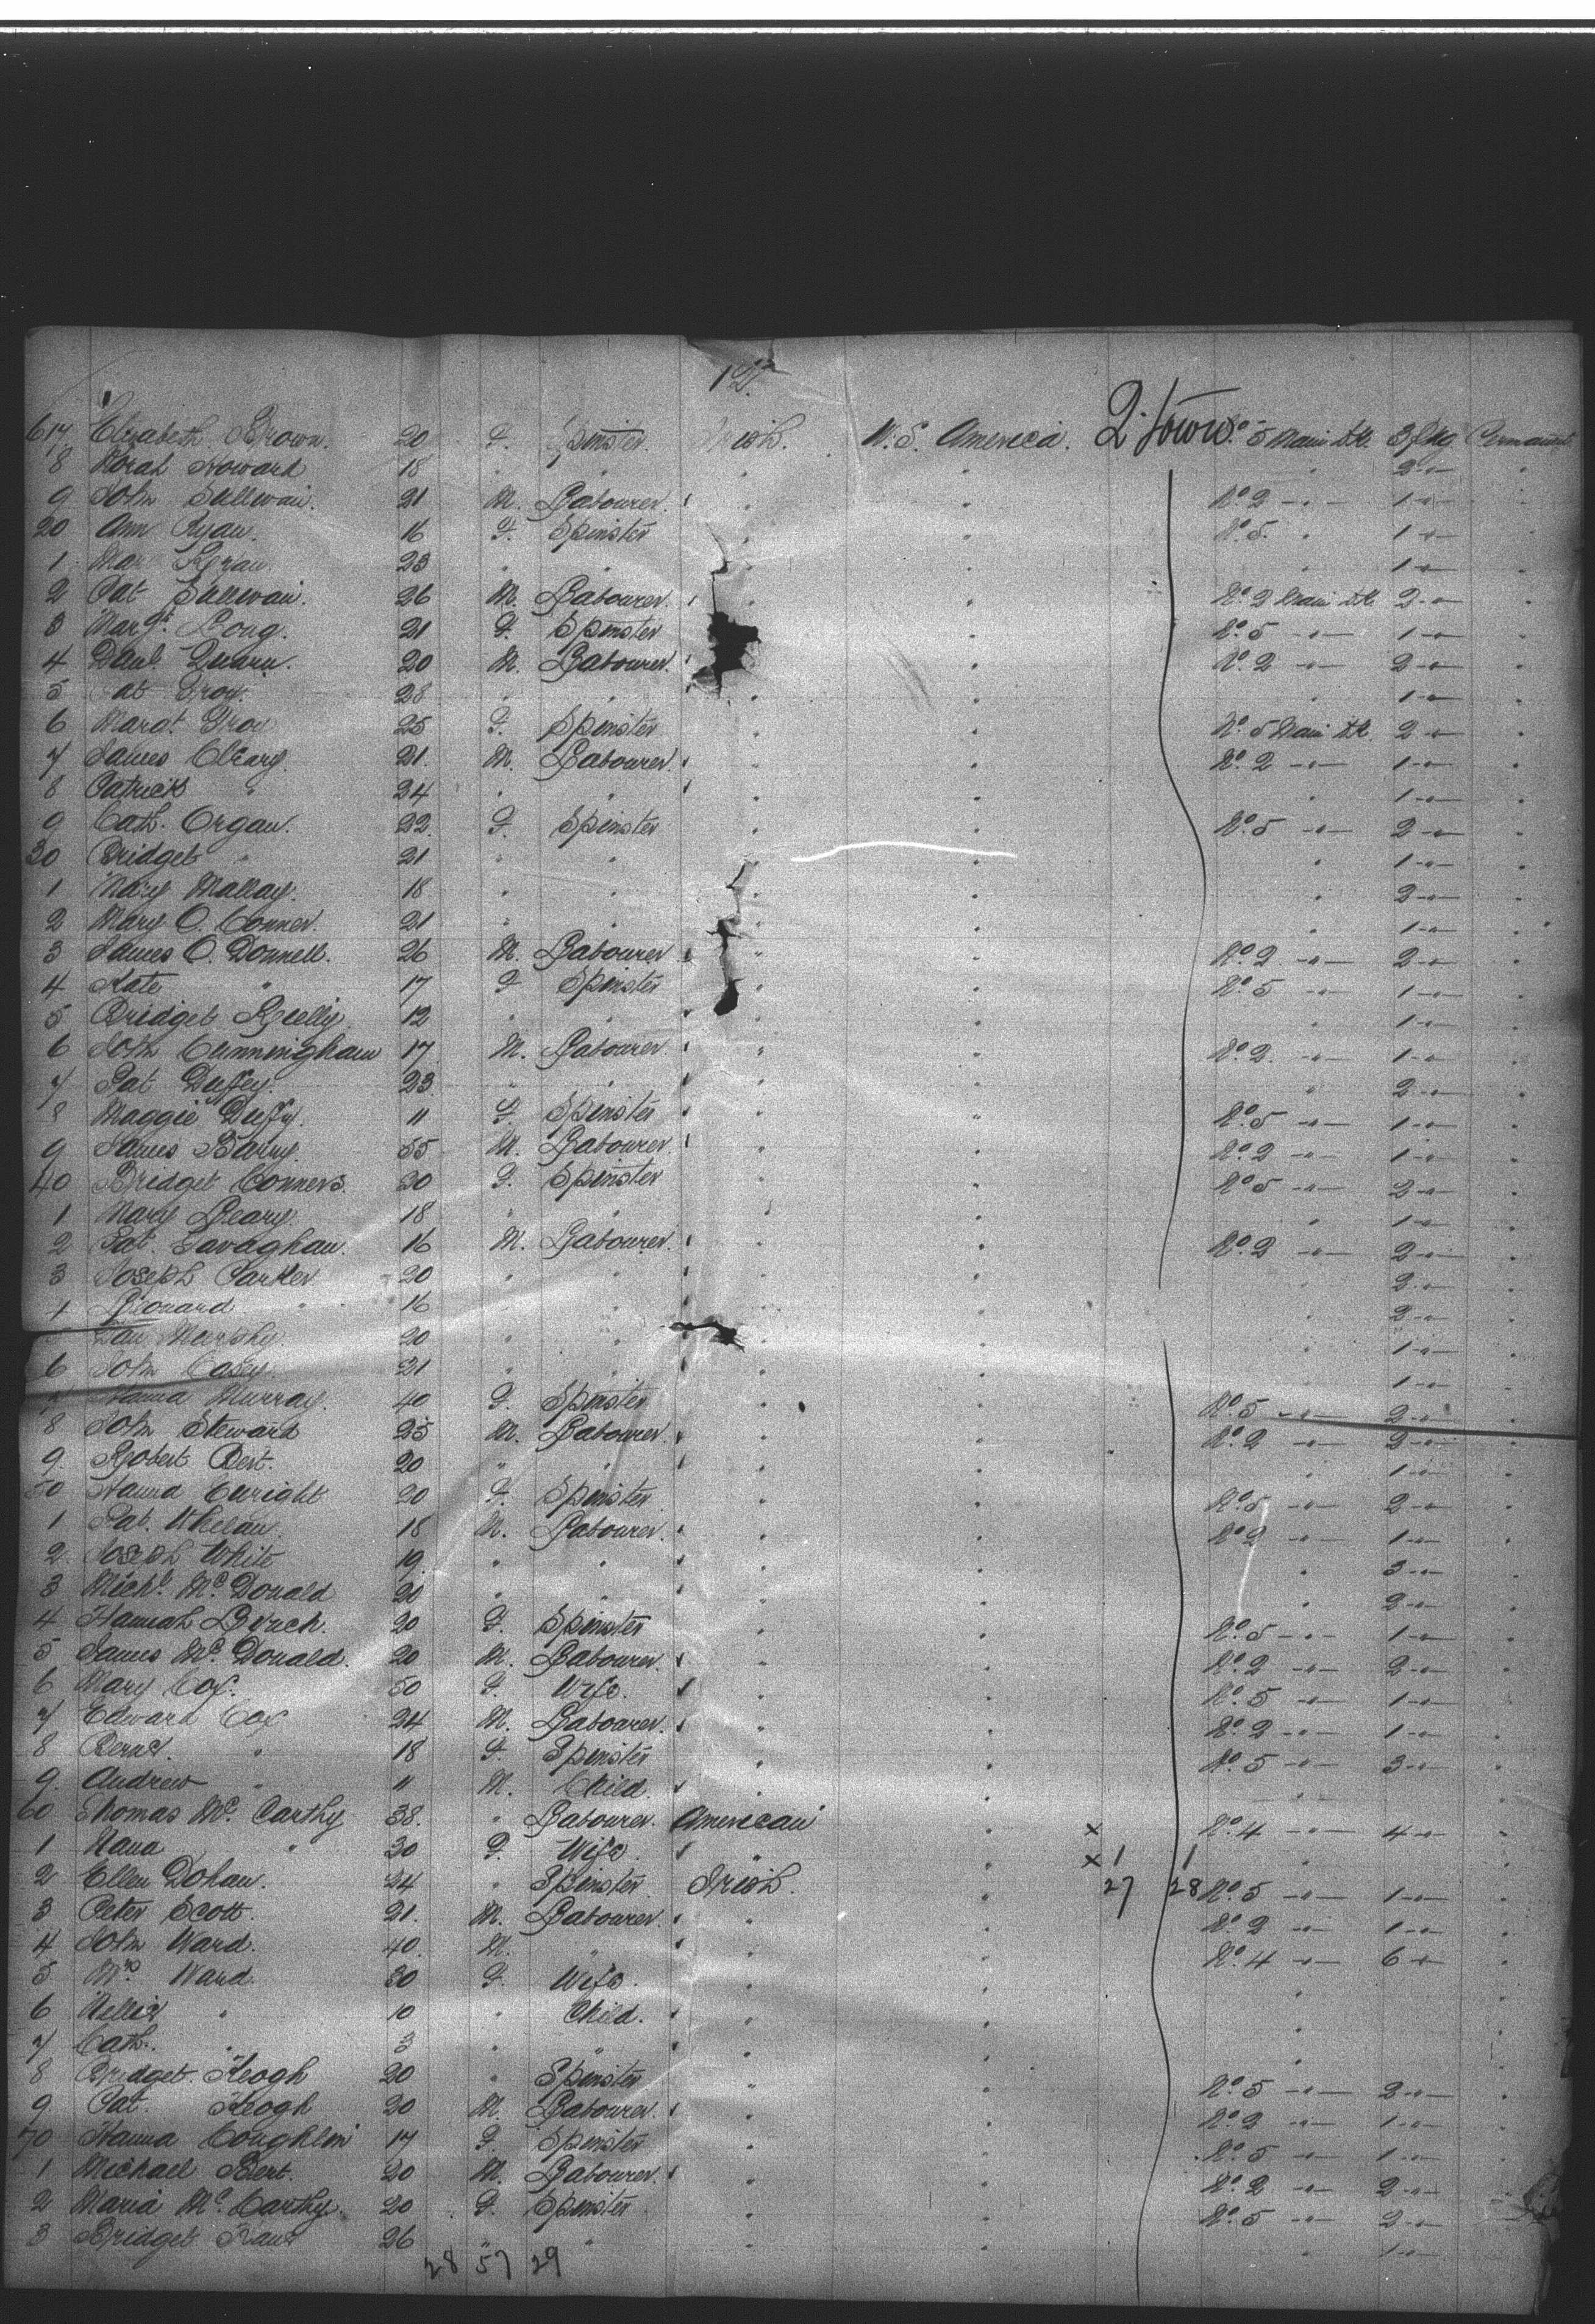 12
617 Elizabeth Brown. 20 F. Spinster. Irish. N.S. America. 2. Town. No 5 Main dk. 3 pkg Permanent
8 Norah Howard 18 " " " " " 2 -"- "
9 John Sullivan. 21 M. Labourer. " " No 2 -"- 1 -"- "
20 Ann Ryan. 16 F. Spinster " " No 5. " 1 -"- "
1 23 " " " " " 1 -"- "
2 Pat Sullivan. 26 M. Labourer. " " No 2 Main dk 2 -"- "
3 Margt. Long. 21 F. Spinster " No 5 -"- 1 -"- "
4 Danl. Quinn. 20 M. Labourer. " No 2 -"- 2 -"- "
5 Pat Troy. 28 " " " " " 1 -"- "
6 Margt. Troy 25 F. Spinster " " No 5 Main dk. 2 -"- "
7 James Cleary. 21. M. Labourer. " " No 2 -"- 1 -"- "
8 Patrick " 24 " " " " " 1 -"- "
9 Cath. Organ. 22. F. Spinster " " No. 5 -"- 2 -"- "
30 Bridget " 21 " " " " " 1 -"- "
1 Mary Mallay. 18 " " " " " 2 -"- "
2 Mary O. Conner. 21 " " " " " 1 -"- "
3 James O. Donnell. 26 M. Labourer " " No 2 -"- 2 -"- "
4 Kate " 17 F Spinster " " No 5 -"- 1 -"- "
5 Bridget Reilly 12 " " " " " 1 -"- "
6 John Cunningham 17 M. Labourer " " No 2. -"- 1 -"- "
7 Pat Duffey. 23 " " " " " 2 -"- "
8 Maggie Duffy. 11 F. Spinster " " No 5 -"- 1 -"- "
9 James Barry. 55 M. Labourer. " " No 2 -"- 1 -"- "
40 Bridget Conners. 20 F. Spinster " " No 5 -"- 2 -"- "
1 Mary Leary. 18 " " " " " 1 -"- "
2 Pat. Gavaghan. 16 M. Labourer. " " No 2 -"- 2 -"- "
3 Joseph Parker 20 " " " " " 2 -"- "
4 Leonard " 16 " " " " " 2 -"- "
Dan Murphy. 20 " " " " " 1 -"- "
6 John Casey. 21 " " " " " 1 -"- "
Hanna Murray. 40 F. Spinster " " No. 5 -"- 2 -"- "
8 John Steward 25 M. Labourer. " " No 2 -"- 2 -"- "
9. Robert Bert. 20 " " " " " 1 -"- "
50 Hanna Enright 20 F. Spinster " " No 5 -"- 2 -"- "
1 Pat. Whelan. 18 M. Labourer. " " No 2 -"- 1 -"- "
2. Joseph White 19. " " " " " 3 -"- "
3 Michl. Mc. Donald 21 " " " " " 2 -"- "
4 Hannah Lynch. 20 F. Spinster " " No. 5 -"- 1 -"- "
5 James Mc. Donald. 20 M. Labourer. " " No 2 -"- 2 -"- "
6 Mary Cox. 50 F. Wife. " " No. 5 -"- 1 -"- "
7 Edward Cox 24 M. Labourer. " " No 2 -"- 1 -"- "
8 " 18 F. Spinster " " No 5 -"- 3 -"- "
9. Andrew " 11 M. Child. " " " "
60 Thomas Mc. Carthy 38. " Labourer. American " x No. 4 -"- 4 -"- "
1 Nana " 30 F. Wife. " " x 1 1 " "
2 Ellen Dolan. 24 " Spinster Irish. " 27 28 No. 5 -"- 1 -"- "
3 Peter Scott. 21. M. Labourer. " " No 2 -"- 1 -"- "
4 John Ward. 40. M. " " " No. 4 -"- 6 -"- "
5 Mrs Ward. 30 F. Wife. " " " "
6 Nellie " 10 " Child. " " " "
7 Cath. " 3 " " " " " "
8 Bridget. Keogh 20 " Spinster " " No. 5 -"- 2 -"- "
9 Pat. Keogh 20 M. Labourer. " " No 2 -"- 1 -"- "
70 Hanna Coughlin 17 F. Spinster " " No. 5 -"- 1 -"- "
1 Michael Bert. 20 M. Labourer. " " No 2 -"- 2 -"- "
2 Maria Mc. Carthy. 20 F. Spinster " " No. 5 -"- 2 -"- "
3 Bridget 26 " " " " " 1 -"-
28 57 29